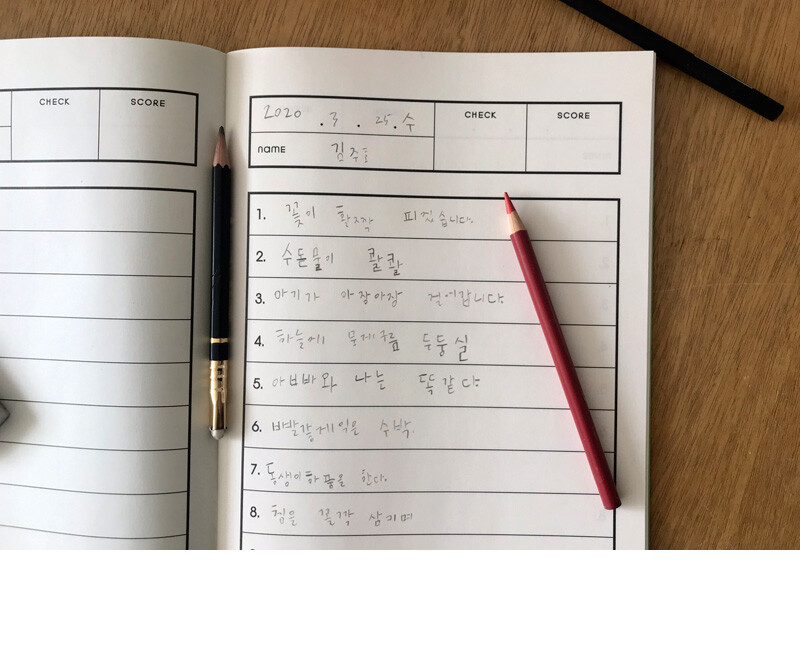 CHECK SCORE
2020 . 3 . 25. 수 CHECK SCORE
name 김주
1. 꽃이 활짝 피었습니다.
2. 수돈물이 콸콸
3. 아기가 아장아장 걸어갑니다.
4. 하늘에 뭉게구름 두둥실
5. 아빠와 나는 똑같다
6. 수박.
7. 동생이 하품을 한다.
8. 침을 꼴깍 삼기며